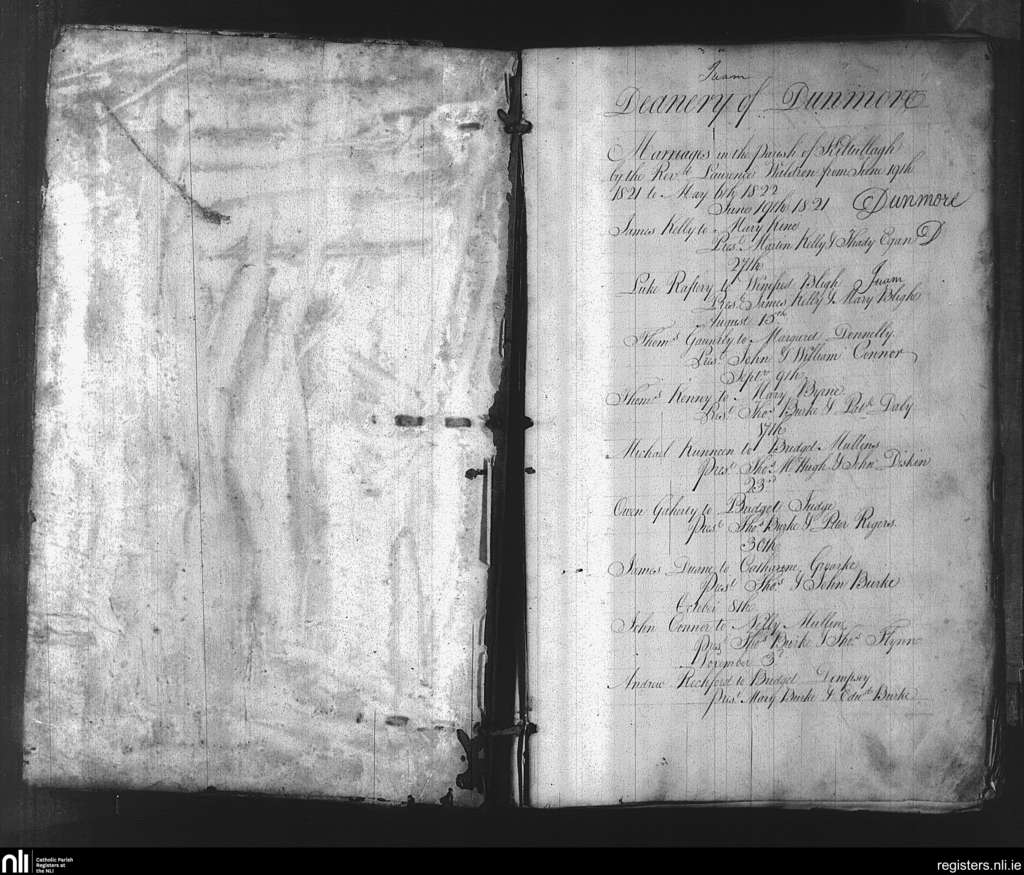 Tuam
Deanery of Dunmore
Marriages in the Parish of Kiltullagh
by the Revd. Laurence Waldron from June 19th
1821 to May 6th 1822
June 19th 1821 Dunmore
James Kelly to Mary Kine
Prest. Martin Kelly & Thady Egan D
27th
Luke Raftery to Winifred Bligh Tuam
Prest. James Kelly & Mary Bligh
August 15th
Thoms. to Margaret Donnelly
Prest. John & William Connor
Septr. 9th
Thoms. Kenny to Mary Byrne
Prest. Thos. Burke & Patk. Daly
17th
Michael to Bridget Mullens
Prest. Thos. McHugh & John Diskin
23rd
Owen Gaherty to Bridget Judge
Prest. Thos. Burke & Peter Rigers
30th
James Duane to Catharine Groarke
Prest. Thos. & John Burke
October 8th
John Connor to Nelly Mullins
Prest. Thos. Burke & Thos. Flynn
November 3d
Andrew Rochford to Bridget Dempsey
Prest. Mary Burke & Edwd. Burke
nli Catholic Parish
Registers at
the NLI
registers.nli.ie